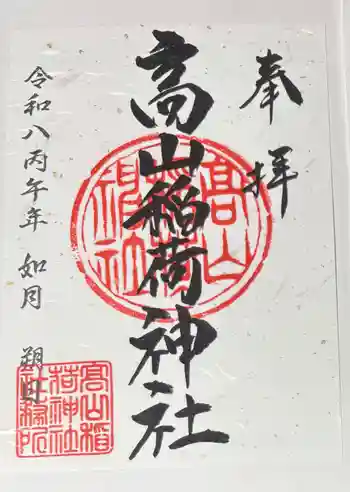 奉拝
高山稲荷神社
令和八丙午年 如月 朔日
高山稲荷神社
高山稲荷神社社務所